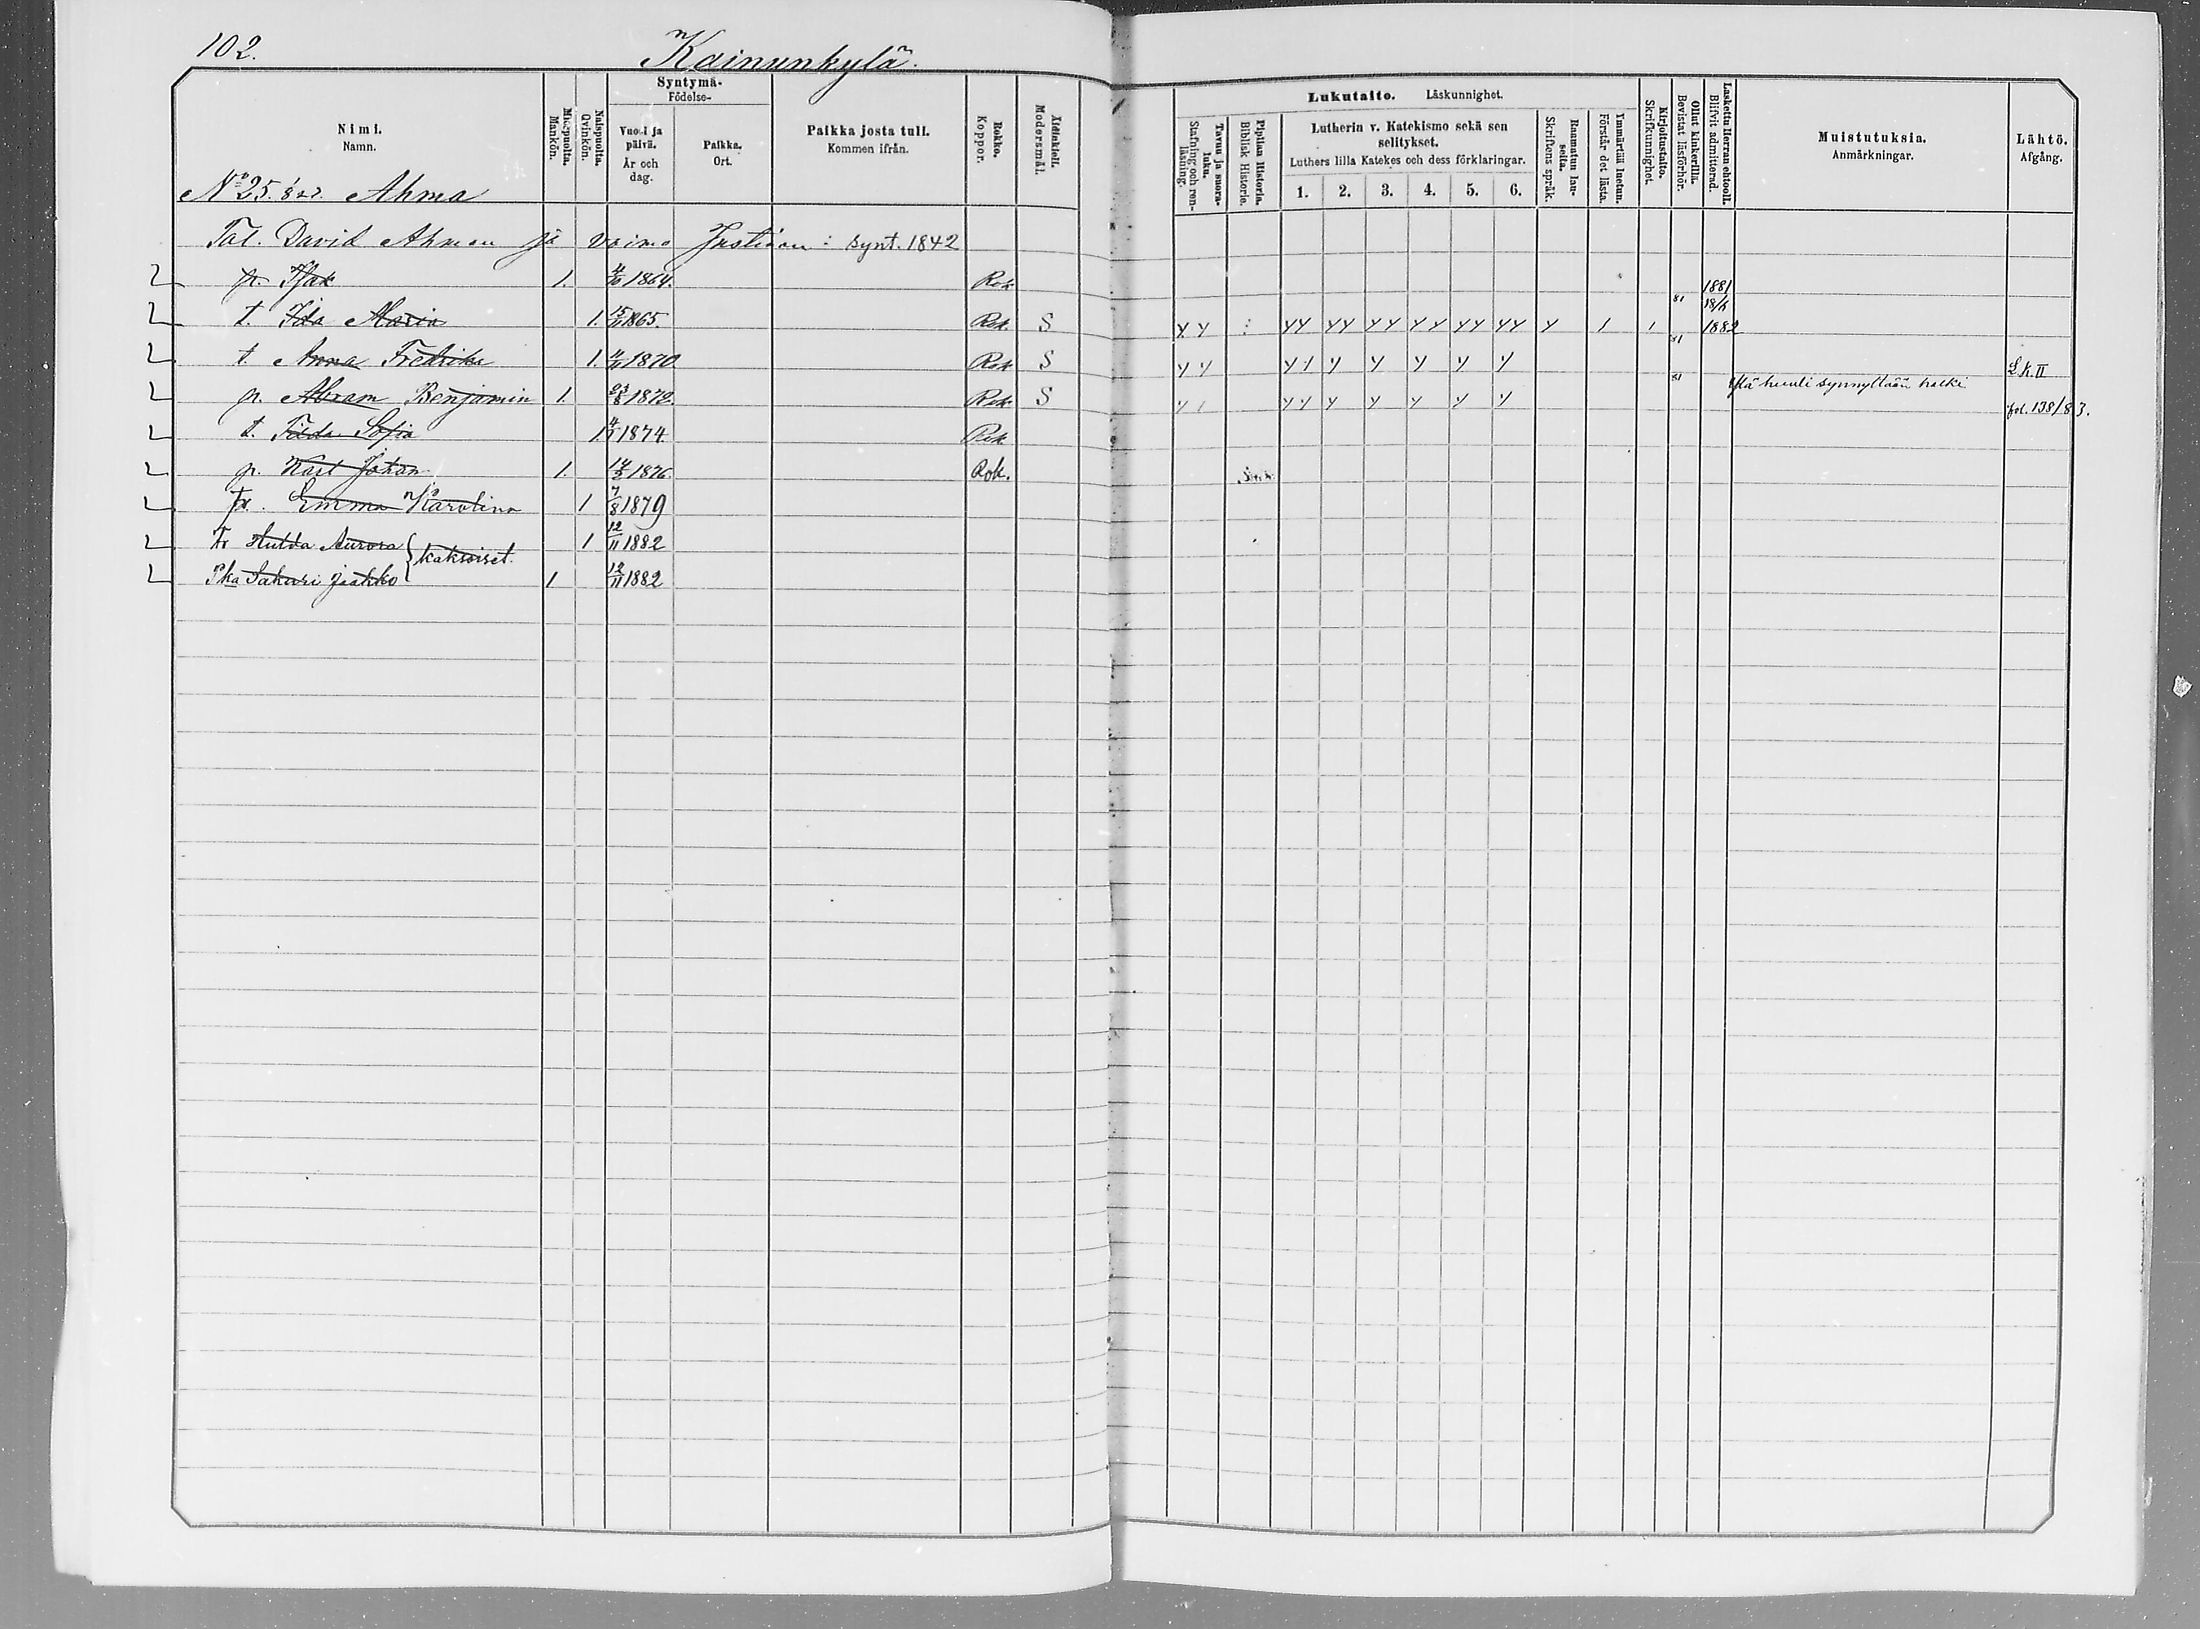 102.
Kainunkylä.
Nimi.
Namn.
Miespuolta.
Mankön.
Naispuolta.
Qvinkön.
Syntymä-
Födelse-
Vuosi ja päivä.
År och dag.
Paikka.
Ort.
Paikka josta tull.
Kommen ifrån.
Rokko.
Koppor.
Äidinkieli.
Modersmål.
Lukutaito. Läskunnighet.
Tavuu ja suoraluku.
Stafning och renläsning.
Piplian Historia.
Biblisk Historie.
Lutherin v. Katekismo sekä sen
selitykset.
Luthers lilla Katekes och dess förklaringar.
1. 2. 3. 4. 5. 6.
Raamatun lauseita.
Skriftens språk.
Ymmärtää luetun.
Förstår det lästa.
Kirjoitustaito.
Skrifkunnighet.
Ollut kinkerillä.
Bevistat läsförhör.
Laskettu Herran ehtooll.
Blifvit admitterad.
Muistutuksia.
Anmärkningar.
Lähtö.
Afgång.
No 25. Ahma
Tal. David Ahman ja vaimo synt. 1842
p. Isak 1. 1864. Rok 1881
t. Ida Maria 1. 15/11 1865. Rok. S y y yy yy yy yy yy yy y 1 1 81 1882
t. Anna Fredrika 1. 1870 Rok S y y y y y y y y 81 L.k. II
p. Abram Benjamin 1. 1872. Rok S y y y y y y y 81 huuli synnyltään halki fol. 138/83.
t. Tilda Sofia 1 1874 Rok
p. Karl Johan 1. 1876. Rok.
Emma Karolina 1 7/8 1879
Tr Hulda Aurora 1 12/11 1882
kaksoiset.
Pka Sakari Jaakko 1 12/11 1882